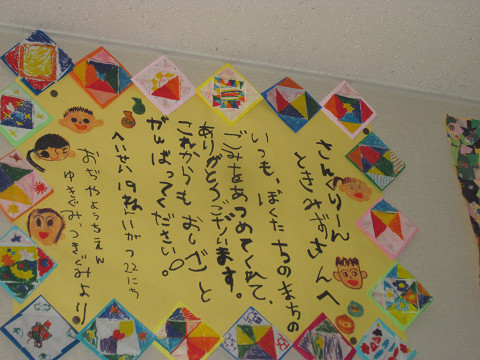 さんくりーん
ときみずさんへ
いつも、ぼくたちのまちの
ごみをあつめてくれて、
ありがとうございます。
これからもおしごと
がんばってください。
へいせい19ねん11がつ22にち
おだやようちえん
ゆきぐみ、つきぐみより